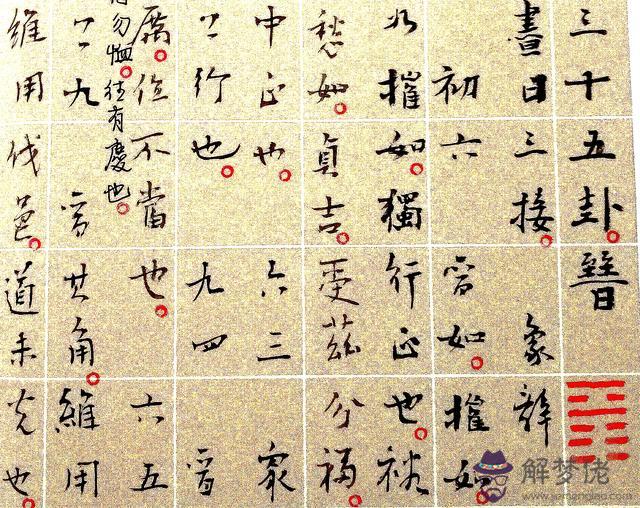 三十五卦。晉
晝日三接。象辭
初六晉如。摧如。
如摧如。獨行正也。裕
愁如。貞吉。受茲介福。
中正也。六三眾
上行也。九四晉
厲。位不當也。六五
勿恤。往有慶也。
上九晉其角。維用
維用伐邑。道未光也。
解梦佬